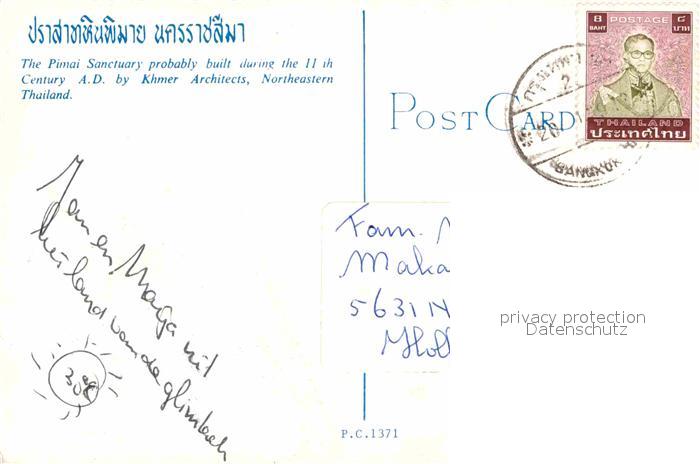 ปราสาทหินพิมาย นครราชสีมา
The Pimai Sanctuary probably built during the 11 th
Century A.D. by Khmer Architects, Northeastern
Thailand.
POST CARD
8 POSTAGE ๘
BAHT บาท
THAILAND
ประเทศไทย
BANGKOK
Jan en Marja uit
het land van de glimlach
30
Fam.
Maka
5631 N
Holl
privacy protection
Datenschutz
P.C.1371